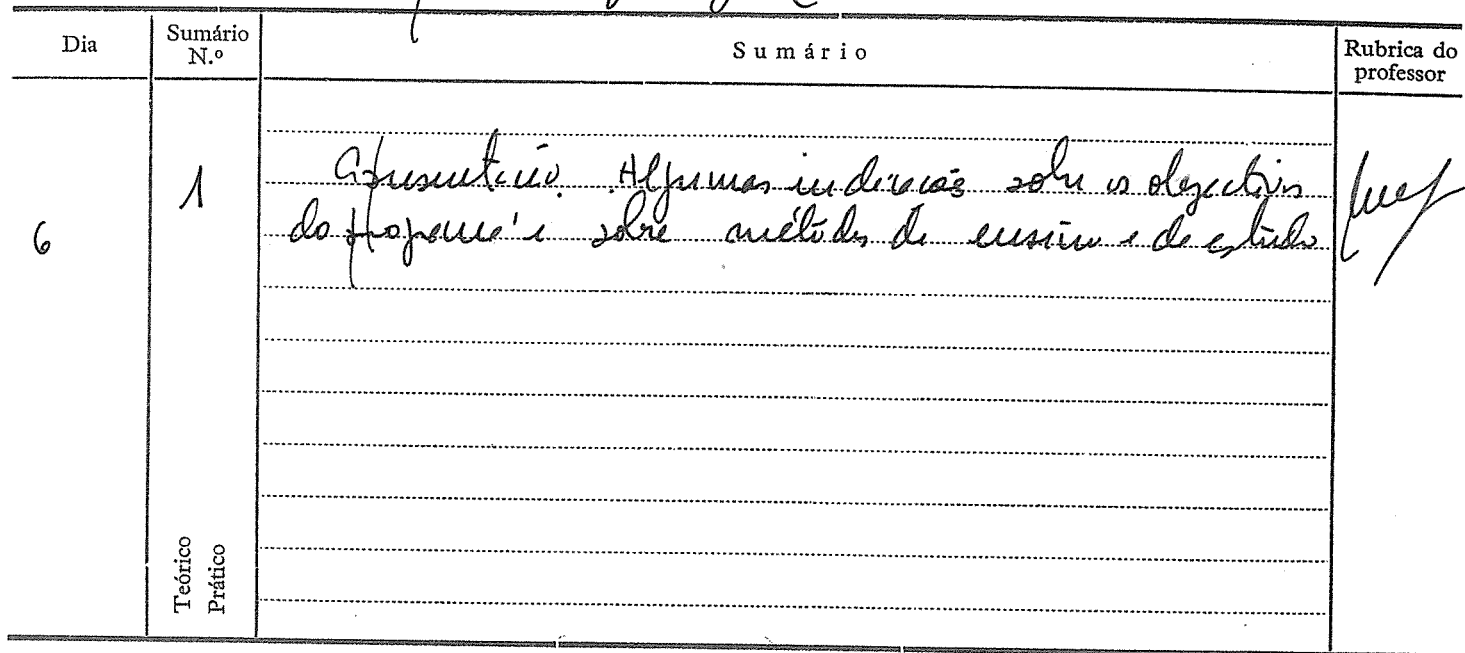 Dia Sumário N.º Sumário Rubrica do professor
6 1 Apresentação. Algumas indicações sobre os objectivos
do programa e sobre métodos de ensino e de estudo
Teórico
Prático